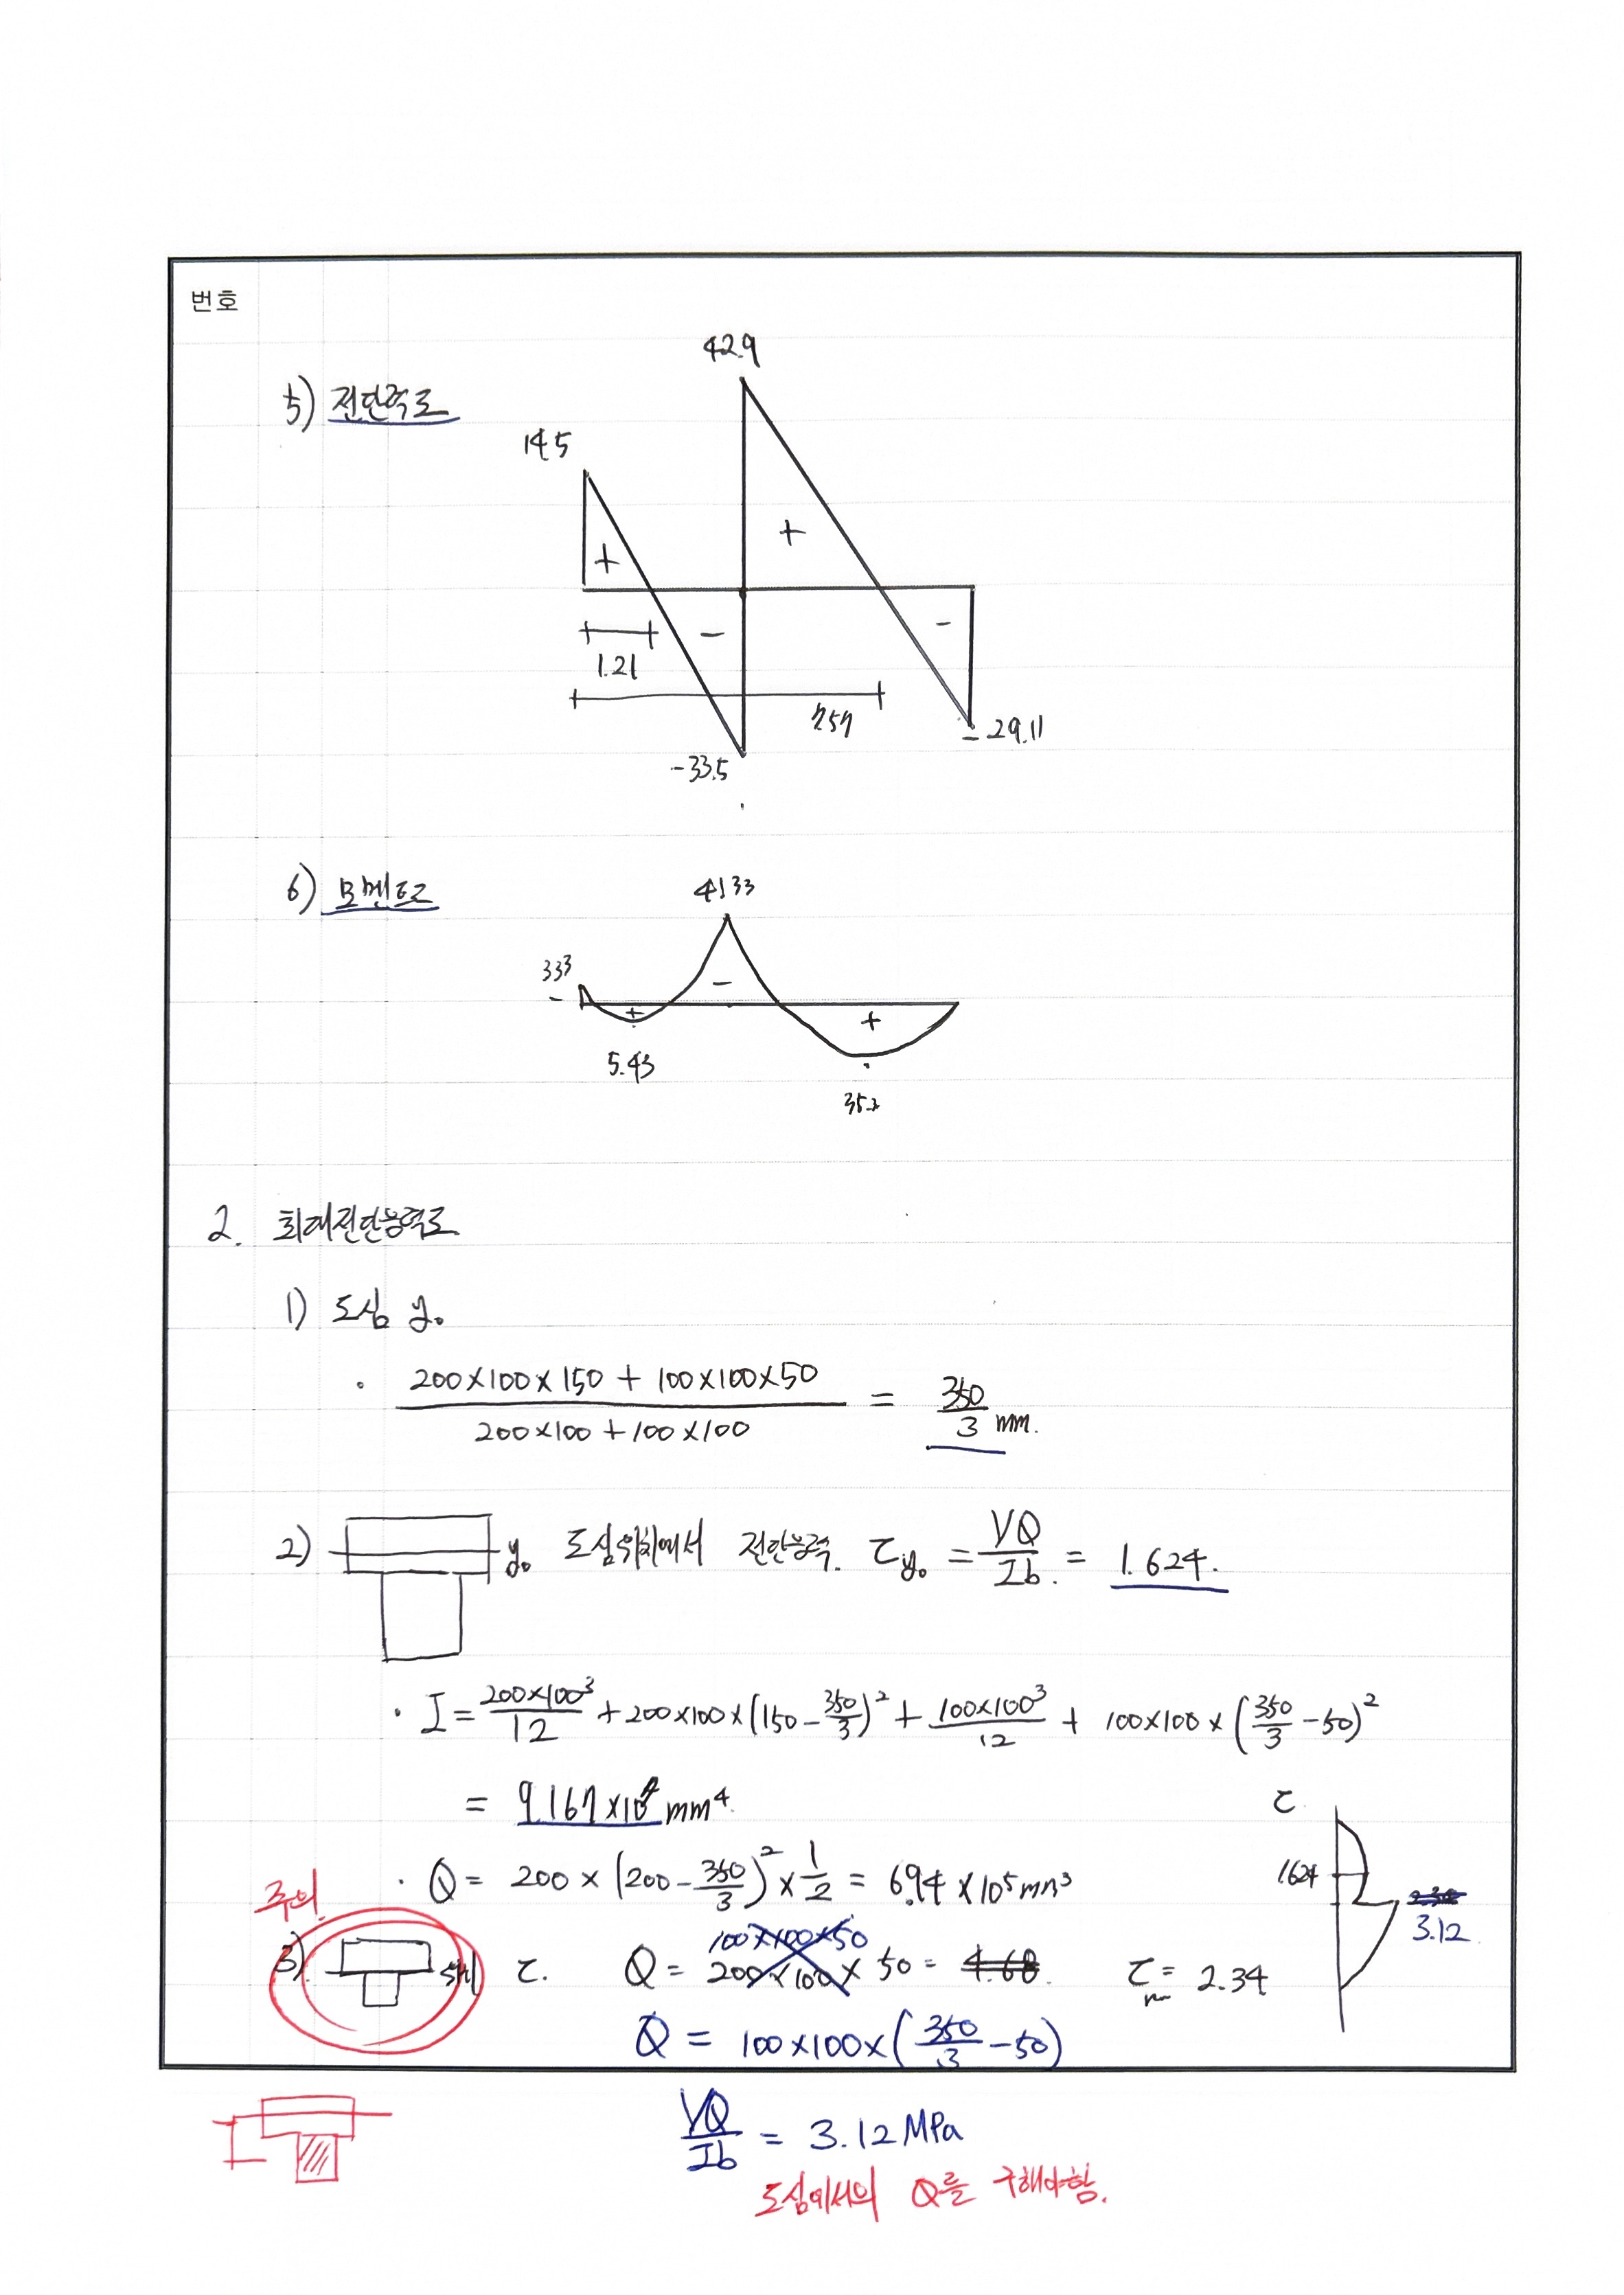 번호
42.9
5) 전단력도
14.5
+
+
-
-
1.21
7.57
-29.11
-33.5
6) 모멘트도
41.33
3.33
-
-
+
+
5.43
35.3
2. 최대전단응력도
1) 도심 y₀
· (200×100×150 + 100×100×50) / (200×100 + 100×100) = 350/3 mm.
2) y₀ 도심위치에서 전단응력. τy₀ = VQ/Ib = 1.624.
· I = 200×100³/12 + 200×100×(150 - 350/3)² + 100×100³/12 + 100×100×(350/3 - 50)²
= 9.167×10⁷ mm⁴
τ
주의
· Q = 200 × (200 - 350/3)² × 1/2 = 6.94 × 10⁵ mm³
1.624
3.12
100×100×50
3) τ. Q = 200×100× 50 = 4.68. τ = 2.34
Q = 100×100×(350/3 - 50)
VQ/Ib = 3.12 MPa
도심에서의 Q를 구해야함.